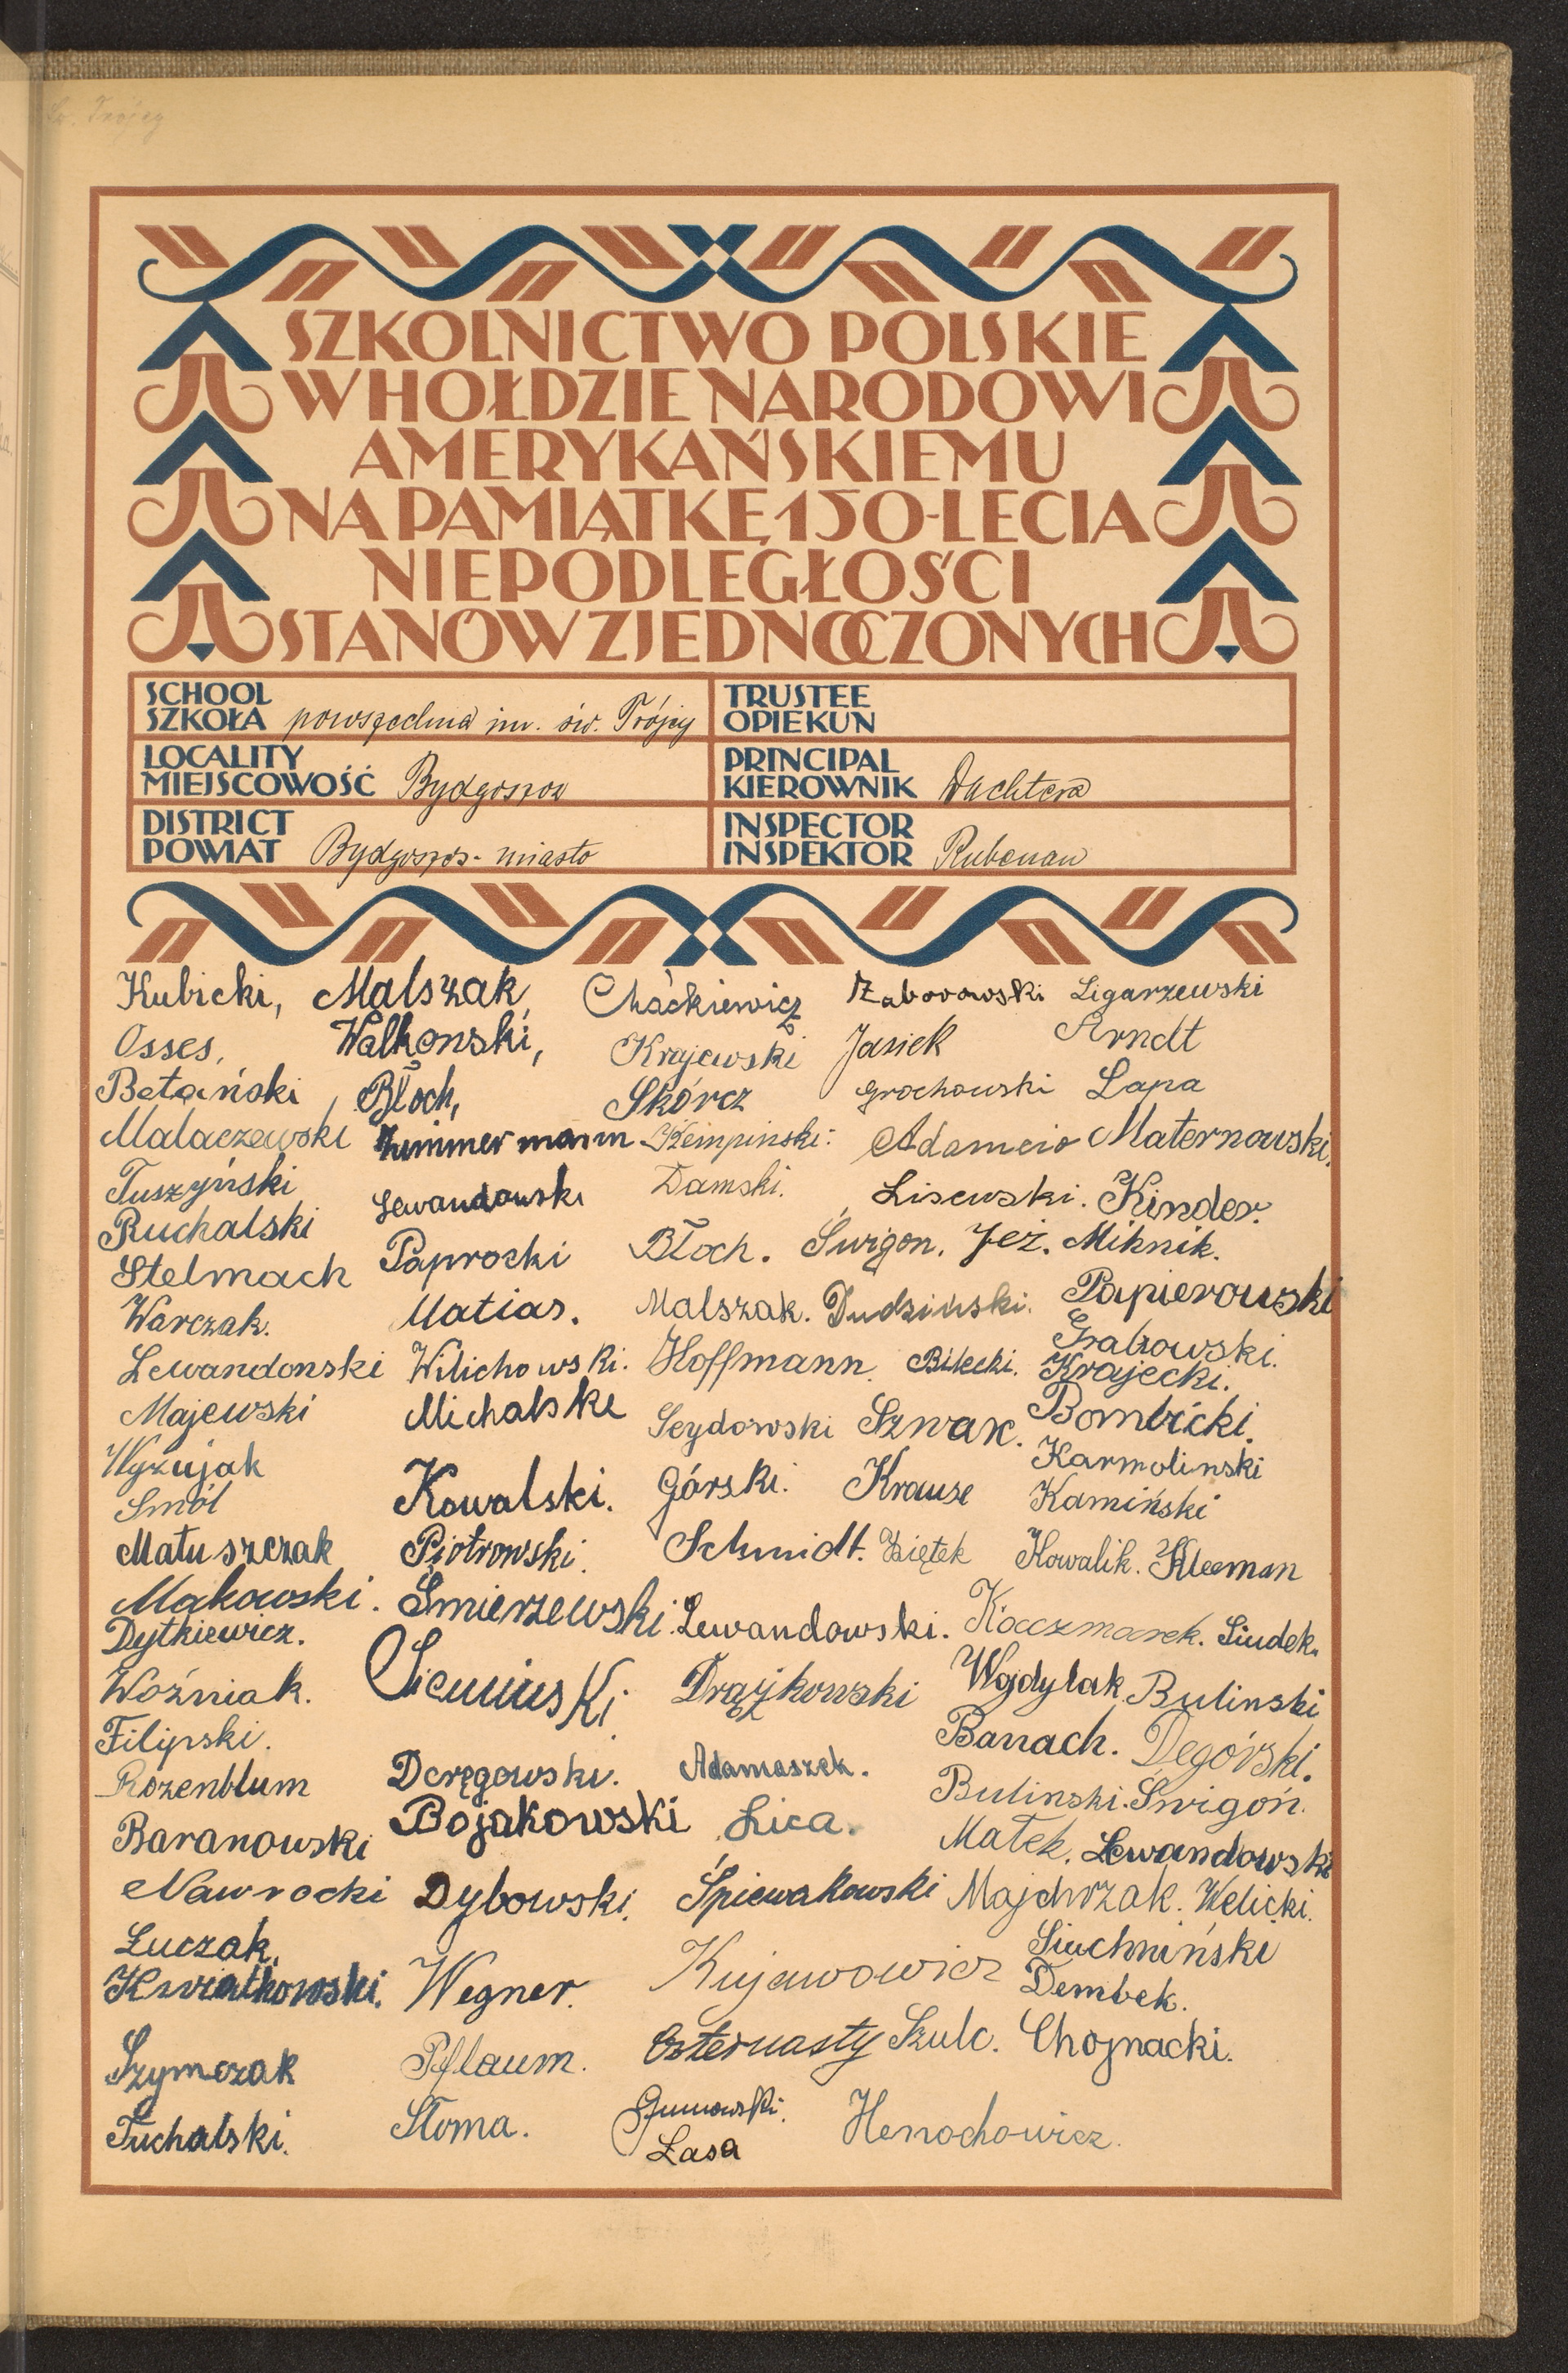 Św. Trójcy
SZKOLNICTWO POLSKIE
W HOŁDZIE NARODOWI
AMERYKAŃSKIEMU
NA PAMIĄTKĘ 150-LECIA
NIEPODLEGŁOŚCI
STANÓW ZJEDNOCZONYCH
SCHOOL
SZKOŁA powszechna im. św. Trójcy
TRUSTEE
OPIEKUN
LOCALITY
MIEJSCOWOŚĆ Bydgoszcz
PRINCIPAL
KIEROWNIK Wachtera
DISTRICT
POWIAT Bydgoszcz-miasto
INSPECTOR
INSPEKTOR Rubenau
Kubicki, Malszak, Chaćkiewicz Zaborowski Ligarzewski
Osses, Walkowski, Krajewski Jasiek Arndt
Betański, Błoch, Skórcz Grochowski Lapa
Malaczewski Zimmermann Kempinski. Adamcio Maternowski.
Tuszyński Lewandowski Damski. Lisewski. Kinder.
Ruchalski Paprocki Błoch. Świgon. Jeż. Miknik.
Stelmach Matias. Malszak. Dudziński. Papierowski
Warczak. Wilichowski. Hoffmann. Bilecki. Grabowski.
Lewandonski Michalski Seydowski Szwax. Krajecki.
Majewski Kowalski. Górski. Krause Bombicki.
Wyzujak Karmolinski
Smól Kamiński
Matuszczak Piotrowski. Schmidt. Ziętek Kowalik. Kleeman
Makowski. Śmierzewski. Lewandowski. Kaczmarek. Siudek.
Dytkiewicz.
Woźniak. Siemiński Drążkowski Wojdylak Bulinski
Filipski. Banach. Degórski.
Rozenblum Deręgowski. Adamaszek. Bulinski. Świgoń.
Baranowski Bojakowski Lica. Małek. Lewandowski
Nawrocki Dybowski. Śpiewakowski Majchrzak. Welicki.
Łuczak, Siuchniński
Kwiatkowski. Wegner. Kujawowicz Dembek.
Szymczak Pflaum. Czternasty Szulc. Chojnacki.
Tuchalski. Słoma. Gumowski. Henochowicz.
Lasa